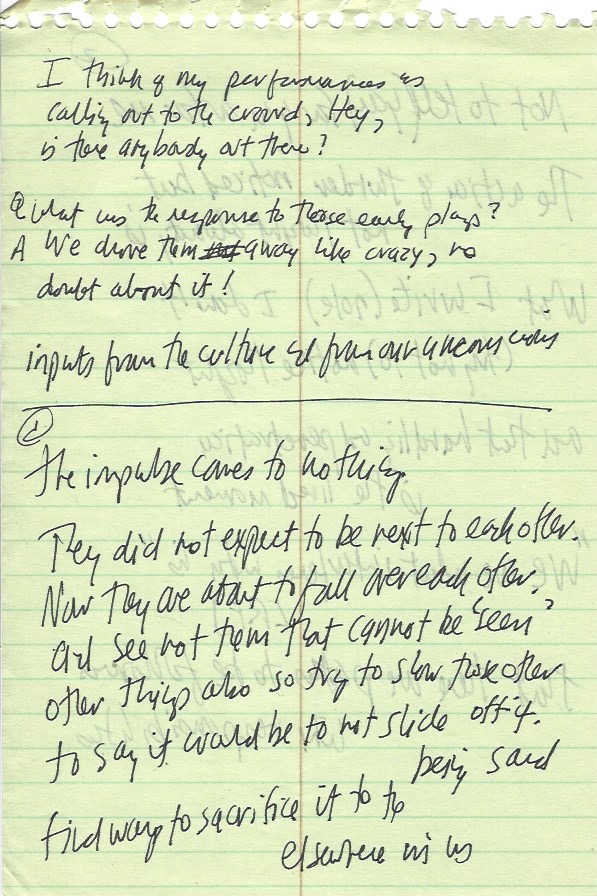 I think of my performances as
calling out to the crowd, Hey,
is there anybody out there?
Q What was the response to those early plays?
A We drove them away like crazy, no
doubt about it!
inputs from the culture and from our unconscious
1
the impulse comes to nothing.
They did not expect to be next to each other.
Now they are about to fall over each other.
and see not them that cannot be "seen"
other things also so try to show those other
to say it would be to not slide off it.
being said
find way to sacrifice it to the
elsewhere in us